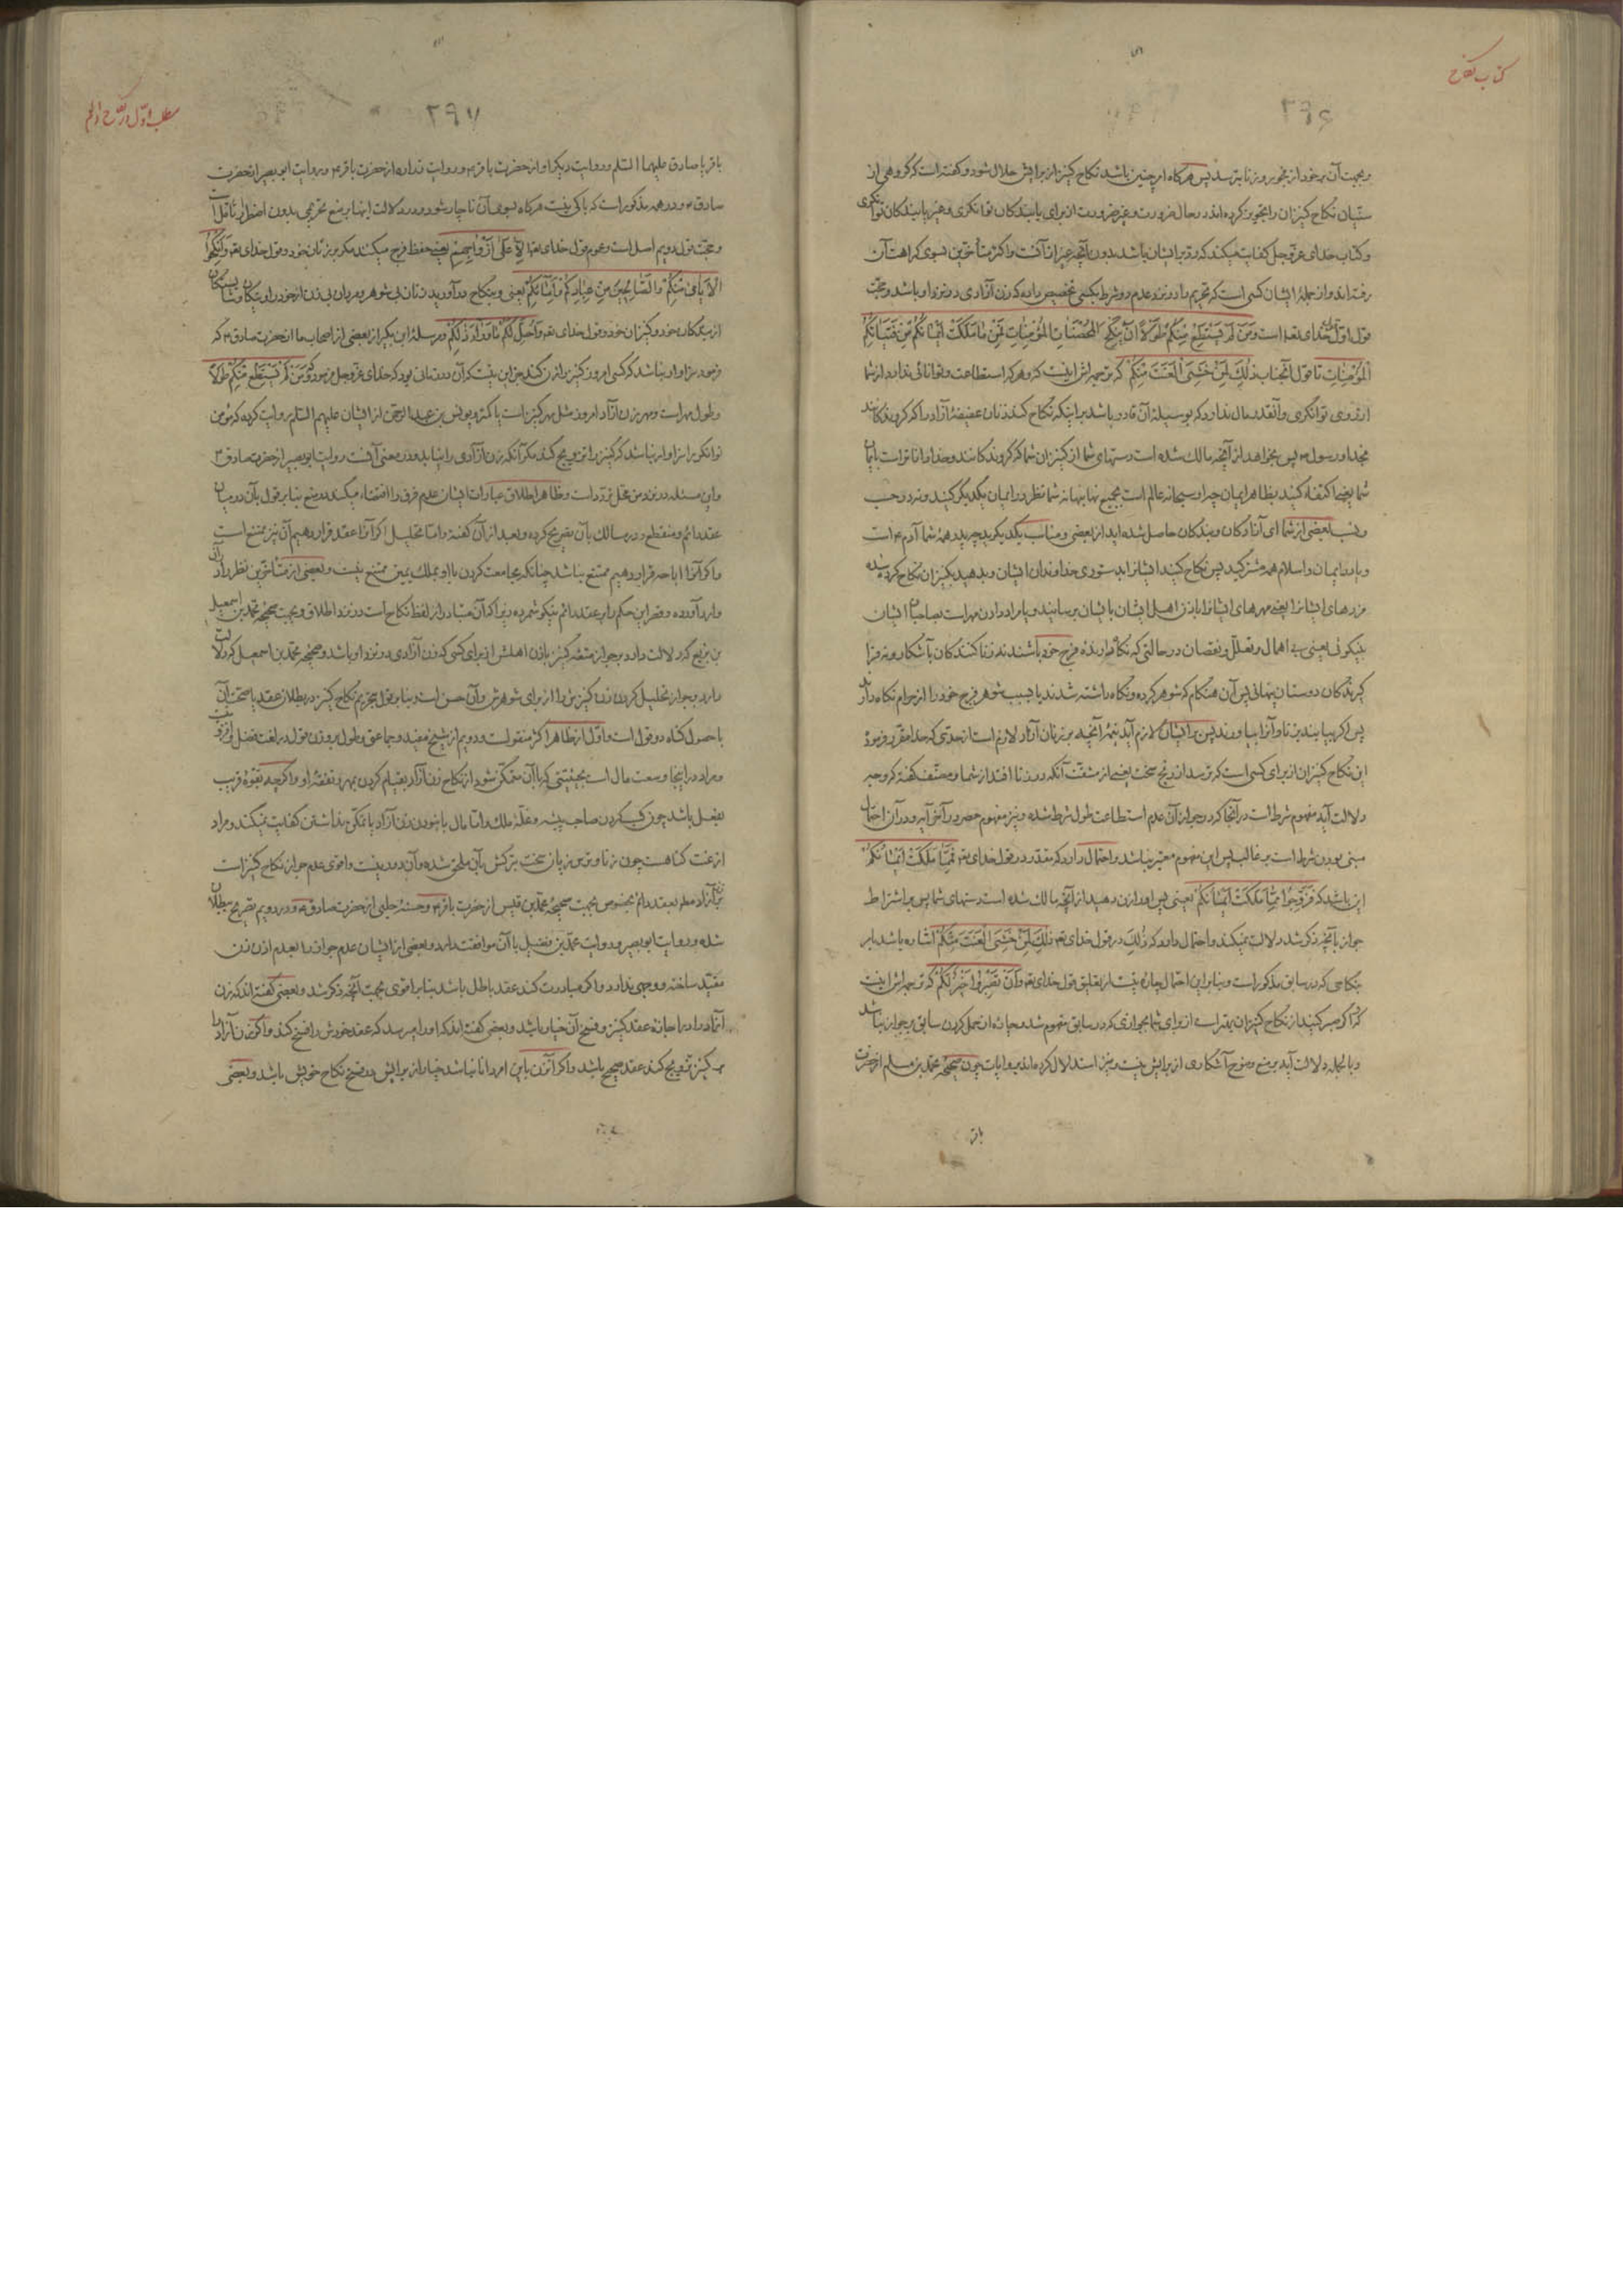 کتاب نکاح
وبجهت آن بر خود از فجور و زنا بترسد پس هرگاه امر چنین باشد نکاح کنیز از برایش حلال شود و گفته است که گروهی از
سنّیان نکاح کنیزان را تجویز کرده‌اند در حال ضرورت و غیر ضرورت از برای یابندکان توانگری و غیر یابندکان توانگری
وکتاب خدای عزّوجل کفایت میکند که ردّ بر ایشان باشد بدون آنچه غیر از آنست واکثر متأخرین بسوی کراهت آن
رفته‌اند و از جملهٔ ایشان کسی است که تحریم را در نزد عدم دو شرط بکسی تخصیص داده که زن آزادی در نزد او باشد و حجّت
قول اوّل قول خدای تعه است وَمَنْ لَمْ یَسْتَطِعْ مِنْکُمْ طَوْلًا اَنْ یَنْکِحَ الْمُحْصَنَاتِ الْمُؤْمِنَاتِ فَمِنْ مَا مَلَکَتْ اَیْمَانُکُمْ مِنْ فَتَیَاتِکُمُ
الْمُؤْمِنَاتِ تا قول آنجناب ذٰلِکَ لِمَنْ خَشِیَ الْعَنَتَ مِنْکُمْ که ترجمه‌اش اینست که و هر که استطاعت و توانائی ندارد از شما
از روی توانگری و آنقدر مال ندارد که بوسیلهٔ آن قادر باشد بر اینکه نکاح کند زنان عفیفهٔ آزاد را که گرویدکانند
بخدا و رسول ۴ پس بخواهد از آنچه مالک شده است دستهای شما از کنیزان شما که گرویدکانند و خدا داناتر است بایمان
شما یعنی اکتفا کنید بظاهر ایمان چه او سبحانه عالم است بجمیع نهانیهای شما نظر در ایمان یکدیگر کنید و نه در حسب
ونسب بعضی از شما ای آزادکان و بندکان حاصل شده‌اید از بعضی و مناسب یکدیکرید چه پدر همهٔ شما آدم ۴ است
و با در ایمان و اسلام همه مشترکید پس نکاح کنید ایشانرا بدستوری خداوندان ایشان و بدهید بکنیزان نکاح کرده شده
مزدهای ایشانرا یعنی مهرهای ایشانرا باذن اهل ایشان بایشان برسانید و یا مراد دادن مهر است بصاحبان ایشان
بنیکوئی یعنی بی اهمال و تعلّل و نقصان در حالتی که نکاهدارندهٔ فرج خود باشند نه زنا کنندکان بآشکار و نه فرا
گیرندکان دوستان پنهانی پس آن هنگام که شوهر کرده و نکاه داشته شدند یا بسبب شوهر فرج خود را از حرام نکاه دارند
پس اگر بیایند بزنا و آنرا بیاورند پس بر ایشان لازم آید نیمهٔ آنچه بر زنان آزاد لازم است از حدّی که خدا مقرر فرموده
این نکاح کنیزان از برای کسی است که ترسد از رنج سخت یعنی از مشقّت آنکه در زنا افتد از شما و مصنّف گفته که وجه
دلالت آیه مفهوم شرطست در آنجا که در جواز آن عدم استطاعت طول شرط شده و نیز مفهوم حصر در آخر آیه و در آن احتمال
مبنی بودن شرط است بر غالب پس این مفهوم معتبر نباشد و احتمال دارد که مقدّر در قول خدای تعه فَمِمَّا مَلَکَتْ اَیْمَانُکُمْ
این باشد که فَزَوِّجُوا مِمَّا مَلَکَتْ اَیْمَانُکُمْ یعنی پس او را زن دهید از آنچه مالک شده است دستهای شما پس بر اشتراط
جواز بآنچه ذکر شد دلالت نمیکند و احتمال دارد که ذٰلِکَ در قول خدای تعه ذٰلِکَ لِمَنْ خَشِیَ الْعَنَتَ مِنْکُمْ اشاره باشد بر
نکاحی که در سابق مذکور است و بنابر این احتمال چاره نیست از تعلیق قول خدای تعه وَاَنْ تَصْبِرُوا خَیْرٌ لَکُمْ که ترجمه‌اش اینست
که اگر صبر کنید از نکاح کنیزان بهتر است از برای شما بجوازی که در سابق مفهوم شد و چاره از حمل کردن سابق بر جواز نباشد
وبالجمله دلالت آیه بر منع وضوح آشکاری از برایش نیست و نیز استدلال کرده‌اند بروایات چون صحیحهٔ محمد بن مسلم از حضرت
باقر
مطلب اوّل در نکاح دائم
۲۶۷
باقر یا صادق علیهما السّلم و روایت دیکر او از حضرت باقر ۴ و روایت زراره از حضرت باقر ۴ و روایت ابو بصیر از حضرت
صادق ۴ و در همه مذکور است که باکی نیست هرکاه بسوی آن ناچار شود و در دلالت اینها بر منع تحریمی بدون اضطرار تأمّل است
وحجّت قول دویم اصل است و عموم قول خدای تعه اِلَّا عَلٰی اَزْوَاجِهِمْ یعنی حفظ فرج میکنند مگر بر زنان خود و قول خدای تعه وَاَنْکِحُوا
الْاَیَامٰی مِنْکُمْ وَالصَّالِحِینَ مِنْ عِبَادِکُمْ وَاِمَائِکُمْ یعنی و بنکاح درآورید زنان بی شوهر و مردان بی زن از خود را و نیکان و شایستگان
از بندکان خود و کنیزان خود و قول خدای تعه وَاُحِلَّ لَکُمْ مَا وَرَاءَ ذٰلِکُمْ و مرسلهٔ ابن بکیر از بعضی از اصحاب ما از حضرت صادق ۴ که
فرمود سزاوار نباشد که کسی امروز کنیز را زن کند جز این نیست که آن در زمانی بود که خدای عزّوجل فرمود وَمَنْ لَمْ یَسْتَطِعْ مِنْکُمْ طَوْلًا
وطول مهر است و مهر زن آزاد امروز مثل مهر کنیز است یا کمتر و یونس بن عبدالرحمن از ایشان علیهم السّلم روایت کرده که مؤمن
توانگر را سزاوار نباشد که کنیز را تزویج کند مکر آنکه زن آزادی را نیابد و در معنی آنست روایت ابو بصیر از حضرت صادق ۴
واین مسئله در نزد من محل تردّد است و ظاهر اطلاق عبارات ایشان عدم فرق را اقتضاء میکند در منع بنابر قول بآن در میان
عقد دائم و منقطع و در مسالک بآن تصریح کرده و بعد از آن گفته و امّا تحلیل اگر آنرا عقد قرار دهیم آن نیز ممتنع است
واگر آنرا اباحه قرار دهیم ممتنع نباشد چنانکه مجامعت کردن با او بملک یمین ممتنع نیست و بعضی از متأخرین نظر را در آن
وارد آورده و قصر این حکم را بر عقد دائم نیکو شمرده زیرا که آن متبادر از لفظ نکاح است در نزد اطلاق و بجهت صحیحهٔ محمّد بن اسمعیل
بن بزیع که دلالت دارد بر جواز متعهٔ کنیز باذن اهلش از برای کسی که زن آزادی در نزد او باشد و صحیحهٔ محمّد بن اسمعیل که دلالت
دارد بر جواز تحلیل کردن زن کنیزش را از برای شوهرش و آن حسن است و بنابر قول بتحریم نکاح کنیز در بطلان عقد یا صحّت آن
با حصول گناه دو قول است و اوّل از ظاهر اکثر منقولست و دویم از شیخ مفید و جماعتی و طول بر وزن قول در لغت فضل و افزونیست
ومراد در اینجا وسعت مال است بحیثیتی که با آن متمکّن شود از نکاح زن آزاد بقیام کردن بمهر و نفقهٔ او و اگرچه بقوّهٔ قریب
بفعل باشد چون کسب کردن صاحب پیشه و غلّهٔ ملک امّا مال با نبودن زن آزاد یا تمکّن نداشتن کفایت نمیکند و مراد
از عنت کناهست چون زنا و ترس زیان سخت بترکش بآن ملحق شده و آن دور نیست و اقوی عدم جواز نکاح کنیز است
شده و روایت ابو بصیر و روایت محمّد بن فضیل با آن موافقت دارد و بعضی از ایشان عدم جواز را بعدم اذن زن
مقیّد ساخته و وجهی ندارد و اگر مبادرت کند عقد باطل باشد بنابر اقوی بجهت آنچه ذکر شد و بعضی گفته‌اند که زن
آزاد را در اجازهٔ عقد کنیز و فسخ آن خیار باشد و بعضی گفته‌اند که او را میرسد که عقد خودش را فسخ کند و اگر زن آزاد را
بر کنیز تزویج کند عقد صحیح باشد و اگر آنزن باین امر دانا نباشد خیار از برایش در فسخ نکاح خویش باشد و بعضی